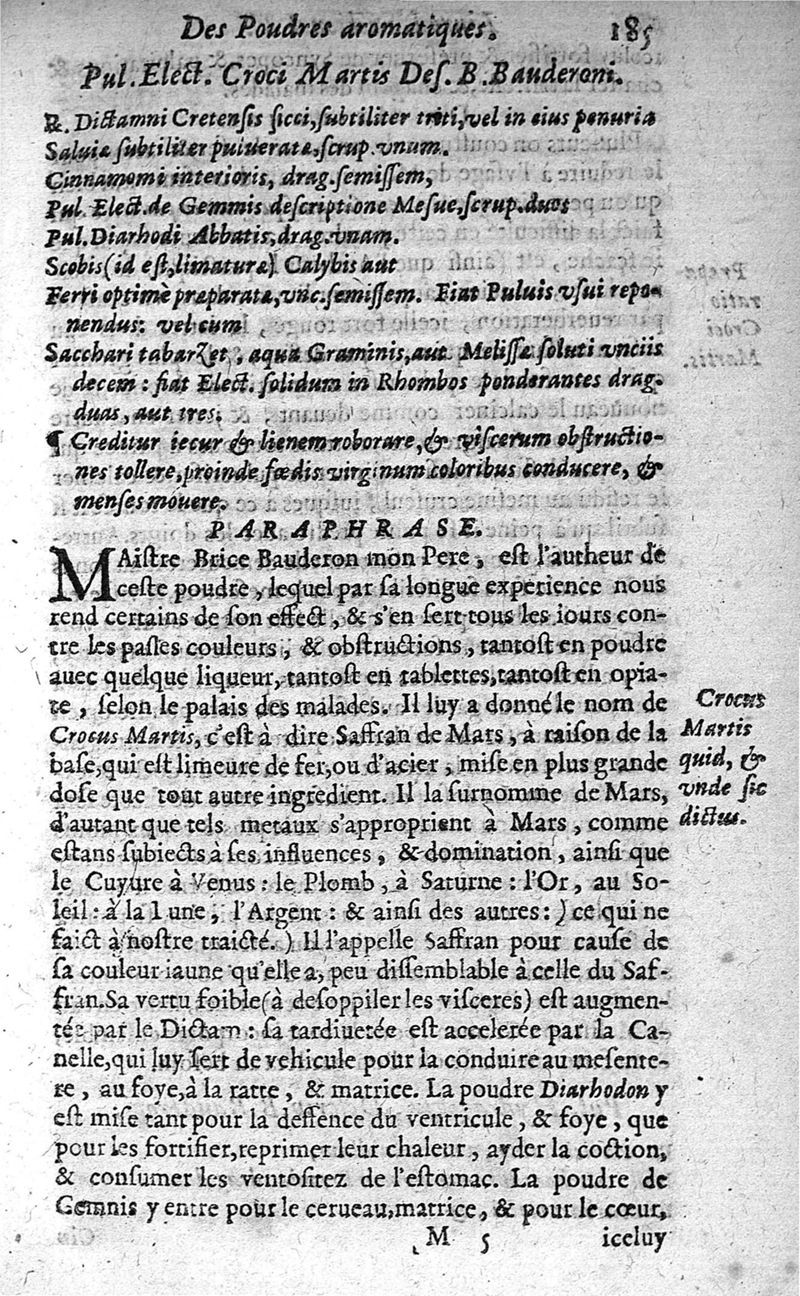 Des Poudres aromatiques. 185
Pul. Elect. Croci Martis Des. B. Bauderoni.
℞. Dictamni Cretensis sicci, subtiliter triti, vel in eius penuria
Saluiæ subtiliter pulueratæ, scrup. vnum.
Cinnamomi interioris, drag. semissem,
Pul. Elect. de Gemmis descriptione Mesue, scrup. duos
Pul. Diarhodi Abbatis, drag. vnam.
Scobis (id est, limaturæ) Calybis aut
Ferri optimè præparatæ, vnc. semissem. Fiat Puluis vsui repo-
nendus: vel cum
Sacchari tabarzet, aqua Graminis, aut Melissæ soluti vnciis
decem: fiat Elect. solidum in Rhombos ponderantes drag.
duas, aut tres.
¶ Creditur iecur & lienem roborare, & viscerum obstructio-
nes tollere, proinde fœdis virginum coloribus conducere, &
menses mouere.
PARAPHRASE.
MAistre Brice Bauderon mon Pere, est l'autheur de
ceste poudre, lequel par sa longue experience nous
rend certains de son effect, & s'en sert tous les iours con-
tre les pasles couleurs, & obstructions, tantost en poudre
auec quelque liqueur, tantost en tablettes, tantost en opia-
te, selon le palais des malades. Il luy a donné le nom de
Crocus Martis, c'est à dire Saffran de Mars, à raison de la
base, qui est limeure de fer, ou d'acier, mise en plus grande
dose que tout autre ingredient. Il la surnomme de Mars,
d'autant que tels metaux s'approprient à Mars, comme
estans subiects à ses influences, & domination, ainsi que
le Cuyure à Venus: le Plomb, à Saturne: l'Or, au So-
leil: à la Lune, l'Argent: & ainsi des autres: ) ce qui ne
faict à nostre traicté. ) Il l'appelle Saffran pour cause de
sa couleur iaune qu'elle a, peu dissemblable à celle du Saf-
fran. Sa vertu foible (à desoppiler les visceres) est augmen-
tée par le Dictam: sa tardiueteé est accelerée par la Ca-
nelle, qui luy sert de vehicule pour la conduire au mesente-
re, au foye, à la ratte, & matrice. La poudre Diarhodon y
est mise tant pour la deffence du ventricule, & foye, que
pour les fortifier, reprimer leur chaleur, ayder la coction,
& consumer les ventositez de l'estomac. La poudre de
Gemnis y entre pour le cerueau, matrice, & pour le cœur,
M 5 iceluy
Crocus
Martis
quid, &
vnde sic
dictus.